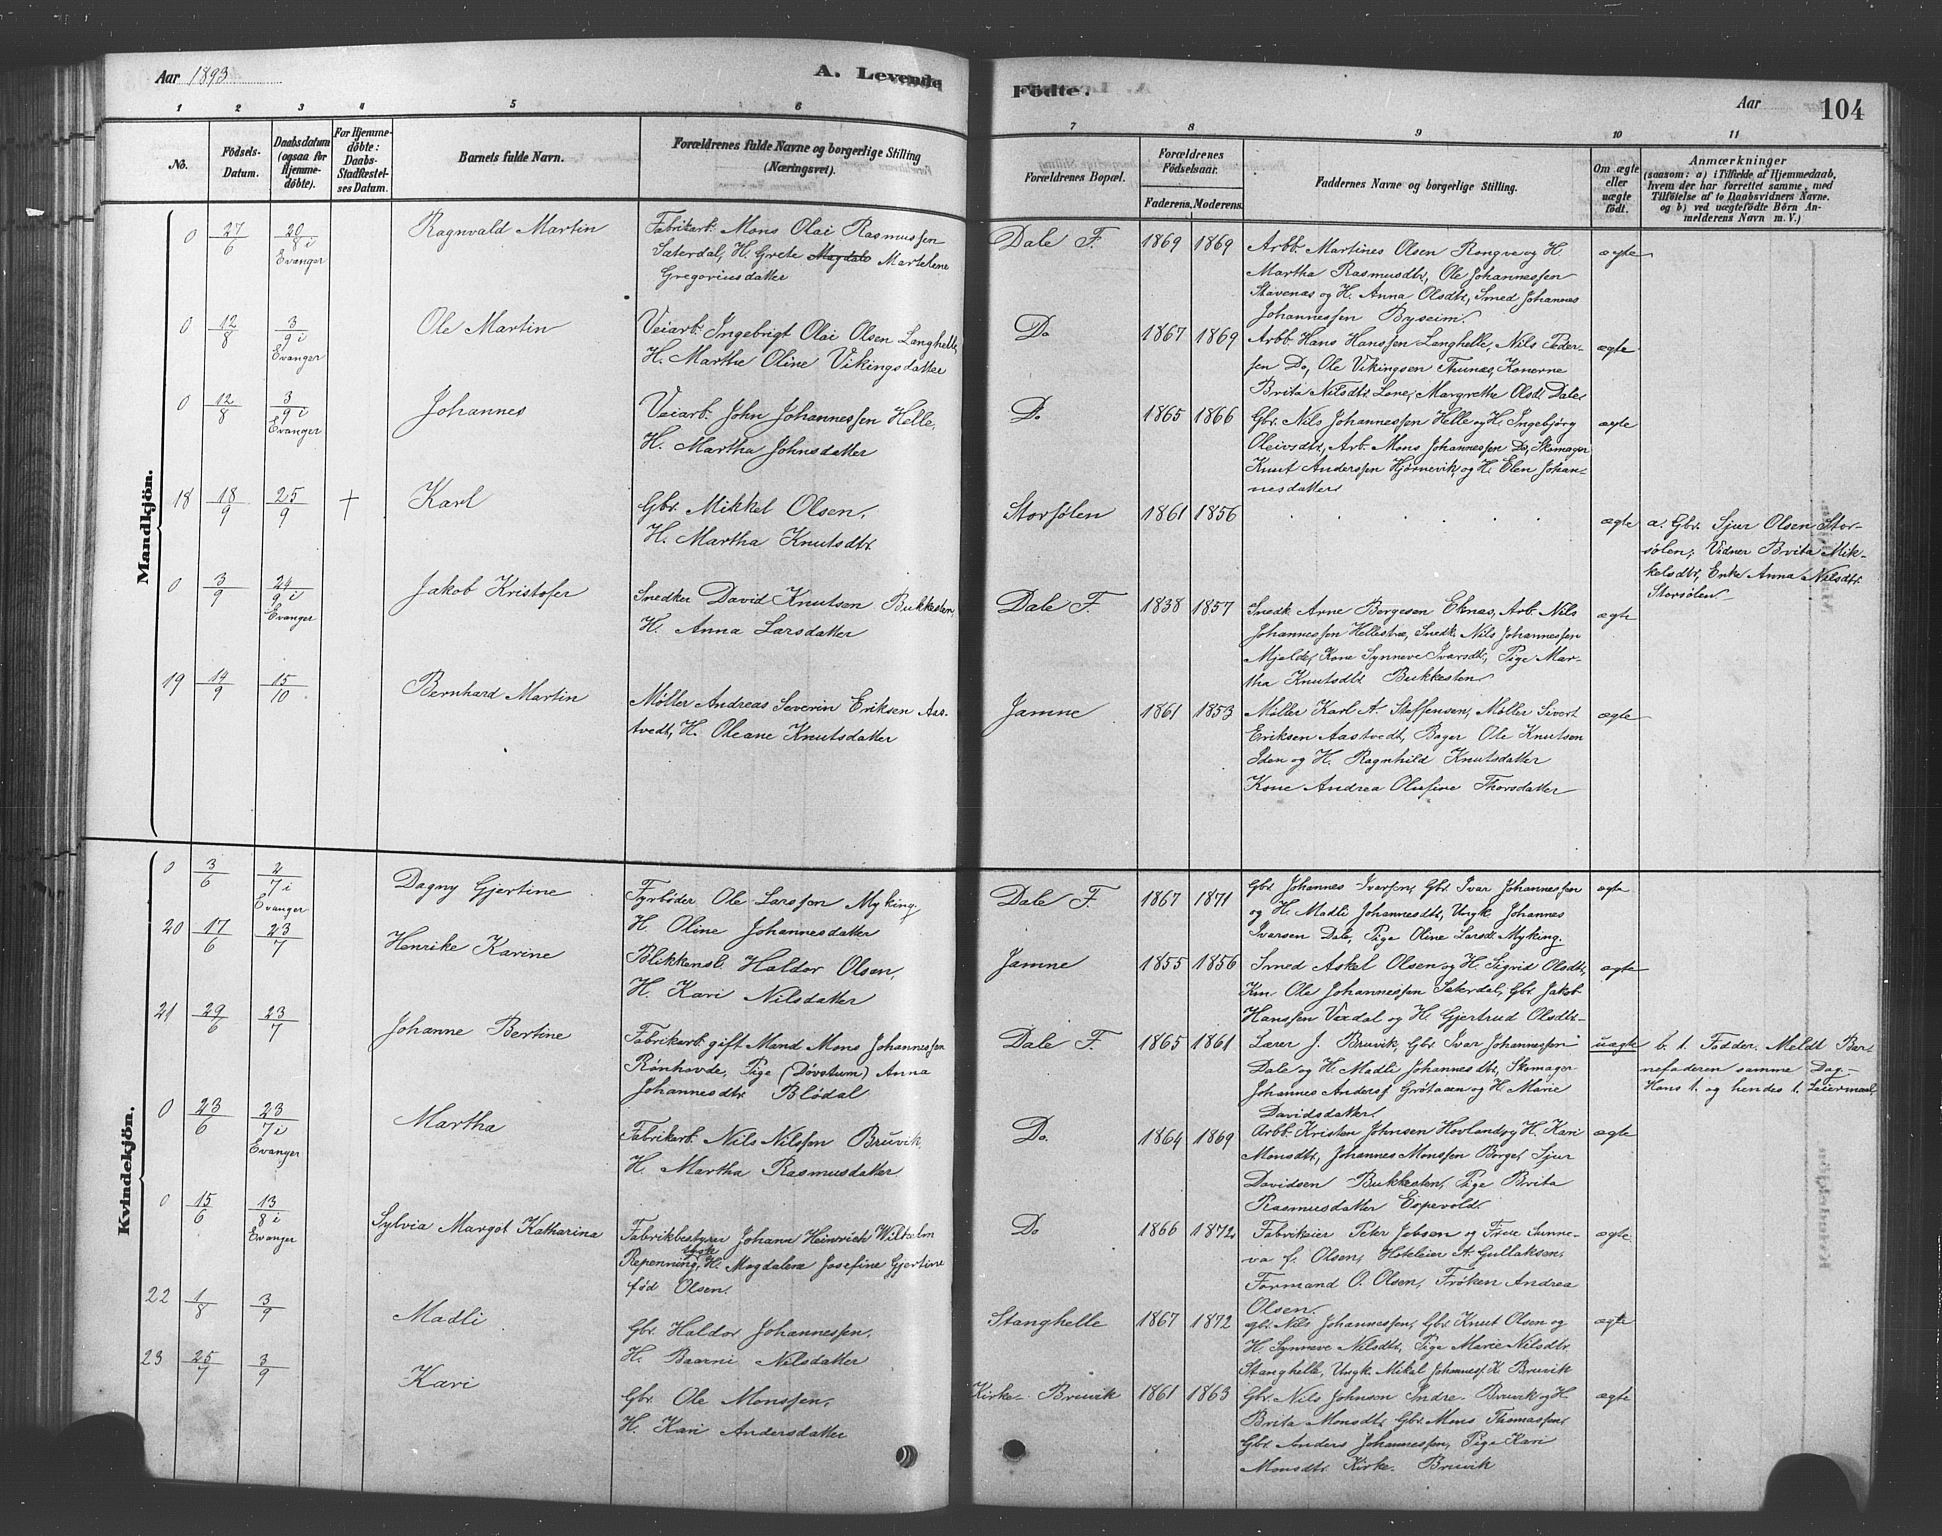 Aar 1893
A. Levende
Födte.
Aar
104
1 2 3 4 5 6 7 8 9 10 11
No.
Födsels-
Datum.
Daabsdatum
(ogsaa for
Hjemme-
döbte).
For Hjemme-
döbte:
Daabs-
Stadfæstel-
ses Datum.
Barnets fulde Navn.
Forældrenes fulde Navne og borgerlige Stilling
(Næringsvei).
Forældrenes Bopæl.
Forældrenes
Födselsaar.
Faderens. Moderens.
Faddernes Navne og borgerlige Stilling.
Om ægte
eller
uægte
födt.
Anmærkninger
(saasom: a) i Tilfælde af Hjemmedaab,
hvem der har forrettet samme, med
Tilföielse af to Daabsvidners Navne.
og b) ved uægtefödte Börn An-
melderens Navn m. V.)
Mandkjön.
0 27/6 20/8 i Evanger
Ragnvald Martin
Fabrikarb. Mons Olai Rasmussen
Saterdal, H. Grete Magdale Martelene
Gregoriusdatter
Dale F. 1869 1869
Arbb. Martines Olsen Rongve og H.
Martha Rasmusdtr, Ole Johannessen
Stavenæs og H. Anna Olsdtr, Smed Johannes
Johannessen Byseim.
ægte
0 12/8 3/9 i Evanger
Ole Martin
Veiarb. Ingebrigt Olai Olsen Langhelle,
H. Martha Oline Vikingsdatter
Do 1867 1869
Arbb. Hans Hanssen Langhelle, Nils Peder-
sen Do, Ole Vikingsen Thunæs, Konerne
Brita Nilsdtr Lone, Margrethe Olsd. Dale,
ægte
0 12/8 3/9 i Evanger
Johannes
Veiarb. John Johannessen Helle,
H. Martha Johnsdatter
Do 1865 1866
Gbr. Nils Johannessen Helle og H. Ingebjørg
Oleivsdtr, Arb. Mons Johannessen Do, Skomager
Knut Anderssen Hjørnevik og H. Elen Johan-
nesdatter
ægte
18 18/9 25/9 +
Karl
Gbr. Mikkel Olsen,
H. Martha Knutsdtr.
Storsølen 1861 1856
ægte
a. Gbr. Sjur Olsen Stor-
sølen; Vidner Brita Mik-
kelsdtr, Enke Anna Nilsdtr
Storsølen
0 3/9 24/9 i Evanger
Jakob Kristofer
Snedker David Knutsen Bukkesten,
H. Anna Larsdatter
Dale F. 1838 1857
Snedk. Arne Børgesen Eknæs, Arb. Nils
Johannessen Hellestræ, Snedk. Nils Johannessen
Mjelde, Kone Synneve Ivarsdtr, Pige Mar-
tha Knutsdtr Bukkesten
ægte
19 14/9 15/10
Bernhard Martin
Møller Andreas Severin Eriksen Aas-
tvedt, H. Oleane Knutsdatter
Jamne 1861 1853
Møller Karl A. Steffensen, Møller Sivert
Eriksen Aastvedt, Bager Ole Knutsen
Iden og H. Ragnhild Knutsdatter
Kone Andrea Olufine Thorsdatter
ægte
Kvindekjön.
0 3/6 2/7 i Evanger
Dagny Gjertine
Fyrbøder Ole Larssen Myking,
H. Oline Johannesdatter
Dale F. 1867 1871
Gbr. Johannes Ivarsen, Gbr. Ivar Johannessen
og H. Madli Johannesdtr, Ungk. Johannes
Ivarsen Dale, Pige Oline Larsdt. Myking.
ægte
20 17/6 23/7
Henrike Karine
Blikkensl. Haldor Olsen,
H. Kari Nilsdatter
Jamne 1855 1856
Smed Askel Olsen og H. Sigrid Olsdtr,
Km. Ole Johannessen Saterdal, Gbr. Jakob
Hanssen Vaxdal og H. Gjertrud Olsdtr
ægte
21 29/6 23/7
Johanne Bertine
Fabrikarb. gift Mand Mons Johannessen
Rønhovde, Pige (Døvstum) Anna
Johannesdtr Blødal
Dale F. 1865 1861
Lærer J. Bruvik, Gbr. Ivar Johannessen
Dale og H. Madli Johannesdtr, Skomager
Johannes Anderss. Grøtaaen og H. Marie
Davidsdatter.
uægte
b. 1. Fadder. Meldt Bar-
nefaderen samme Dag.
Hans 1. og hendes 1. Leiermaal
0 23/6 23/7 i Evanger
Martha
Fabrikarb. Nils Nilssen Bruvik
H. Martha Rasmusdatter
Do. 1864 1869
Arbb. Kristen Johnsen Hovland og H. Kari
Monsdtr, Johannes Monssen Borge, Sjur
Davidsen Bukkesten, Pige Brita
Rasmusdatter Espevold.
ægte
0 15/6 13/8 i Evanger
Sylvia Margot Katharina
Fabrikbestyrer Johann Heinrich Wilhelm
Repenning, H. Magdalena Josefine Gjertine
fød Olsen.
Do 1866 1872
Fabrikeier Peter Jebsen og Frue Sunne-
va f. Olsen, Hoteleier A. Gullaksen,
Formand O. Olsen, Frøken Andrea
Olsen.
ægte.
22 1/8 3/9
Madli
Gbr. Haldor Johannessen,
H. Baarni Nilsdatter
Stanghelle 1867 1872
Gbr. Nils Johannessen, Gbr. Knut Olsen og
H. Synneve Nilsdtr, Pige Marie Nilsdtr
Stanghelle, Ungk. Mikal Johannes. K. Bruvik
ægte
23 25/7 3/9
Kari
Gbr. Ole Monssen,
H. Kari Andersdatter
Kirke-Bruvik 1861 1863
Gbr. Nils Johnson Indre-Bruvik og H.
Brita Monsdtr, Gbr. Mons Thomassen,
Gbr. Anders Johannessen, Pige Kari
Monsdtr. Kirke-Bruvik
ægte